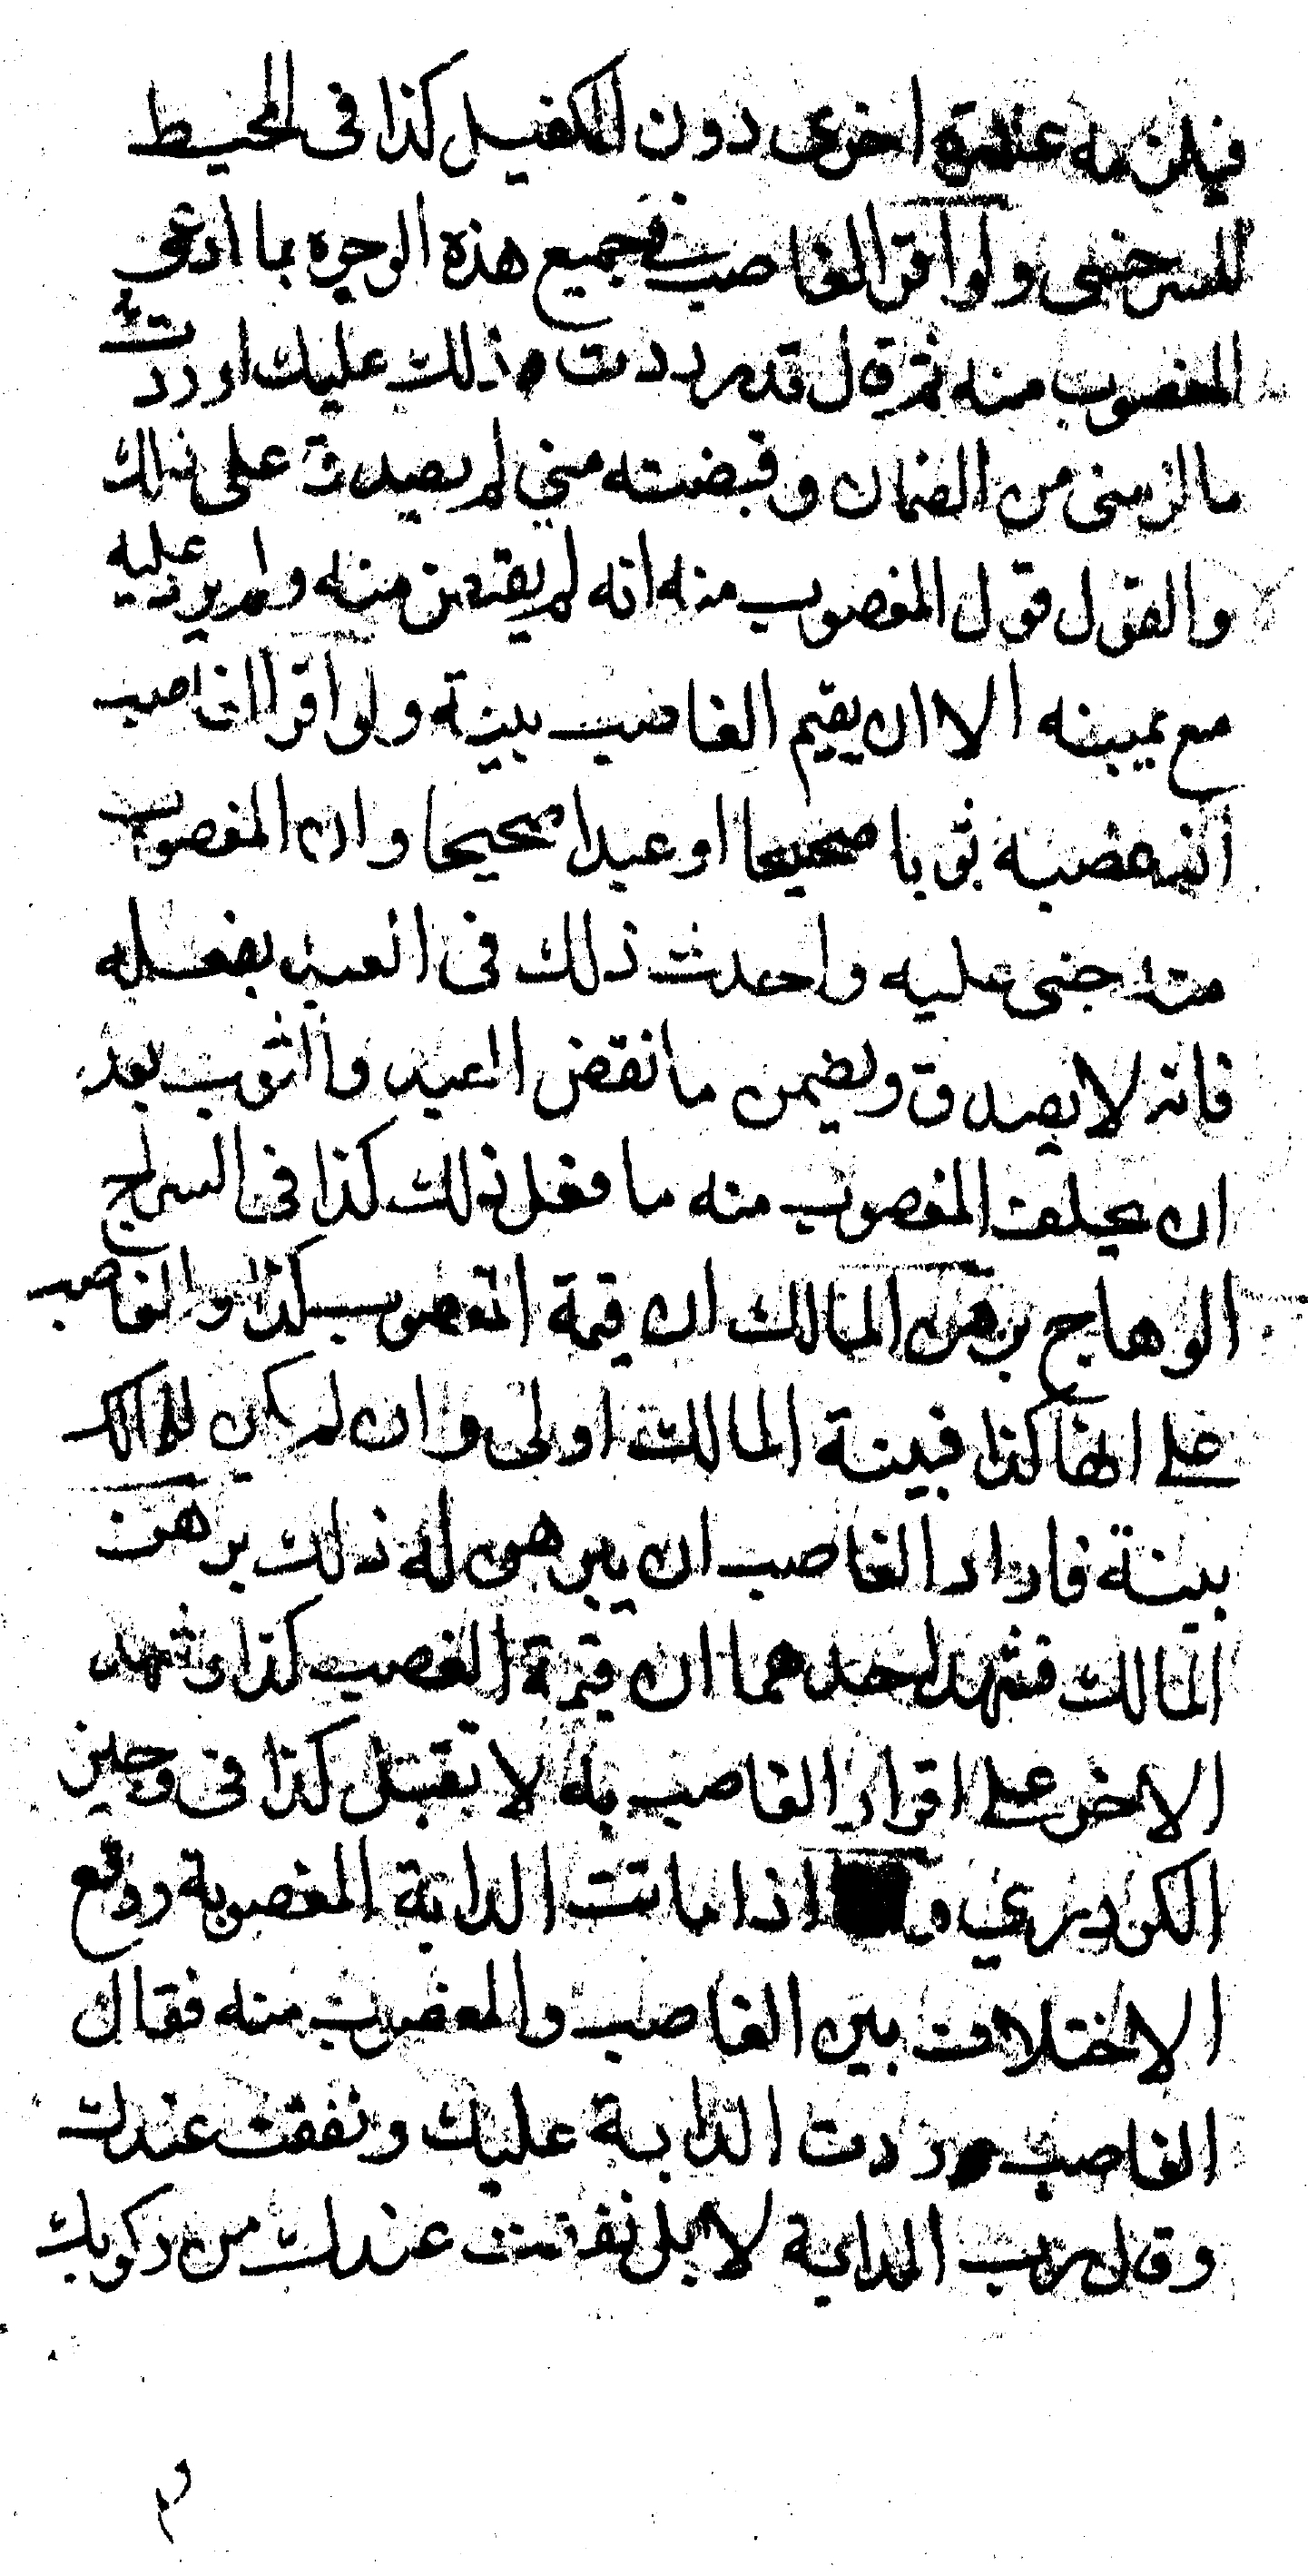 فيلزمه عشرة اخرى دون الكفيل كذا فى المحيط
للسرخسى ولو اقر الغاصب فى جميع هذه الوجوه بما ادعى
المغصوب منه ثم قال قد رددت ذلك عليك او رددت
ما لزمنى من الضمان وقبضته منى لم يصدق على ذلك
والقول قول المغصوب منه انه لم يقبض منه ولم يرد عليه
مع يمينه الا ان يقيم الغاصب بينة ولو اقر الغاصب
انه غصبه ثوبا صحيحا او عبدا صحيحا وان المغصوب
منه جنى عليه واحدث ذلك فى العبد بفعله
فانه لا يصدق ويضمن ما نقض العبد والثوب بعد
ان يحلف المغصوب منه ما فعل ذلك كذا فى السراج
الوهاج برهن المالك ان قيمة المغصوب كذا والغاصب
على انها كذا فبينة المالك اولى وان لم يكن للمالك
بينة فاراد الغاصب ان يبرهن له ذلك برهن
المالك فشهد احدهما ان قيمة الغصب كذا وشهد
الاخر على اقرار الغاصب به لا تقبل كذا فى وجيز
الكردري و اذا ماتت الدابة المغصوبة ووقع
الاختلاف بين الغاصب والمغصوب منه فقال
الغاصب رددت الدابة عليك ونفقت عندك
وقال رب الدابة لا بل نفقت عندك من ركوبك